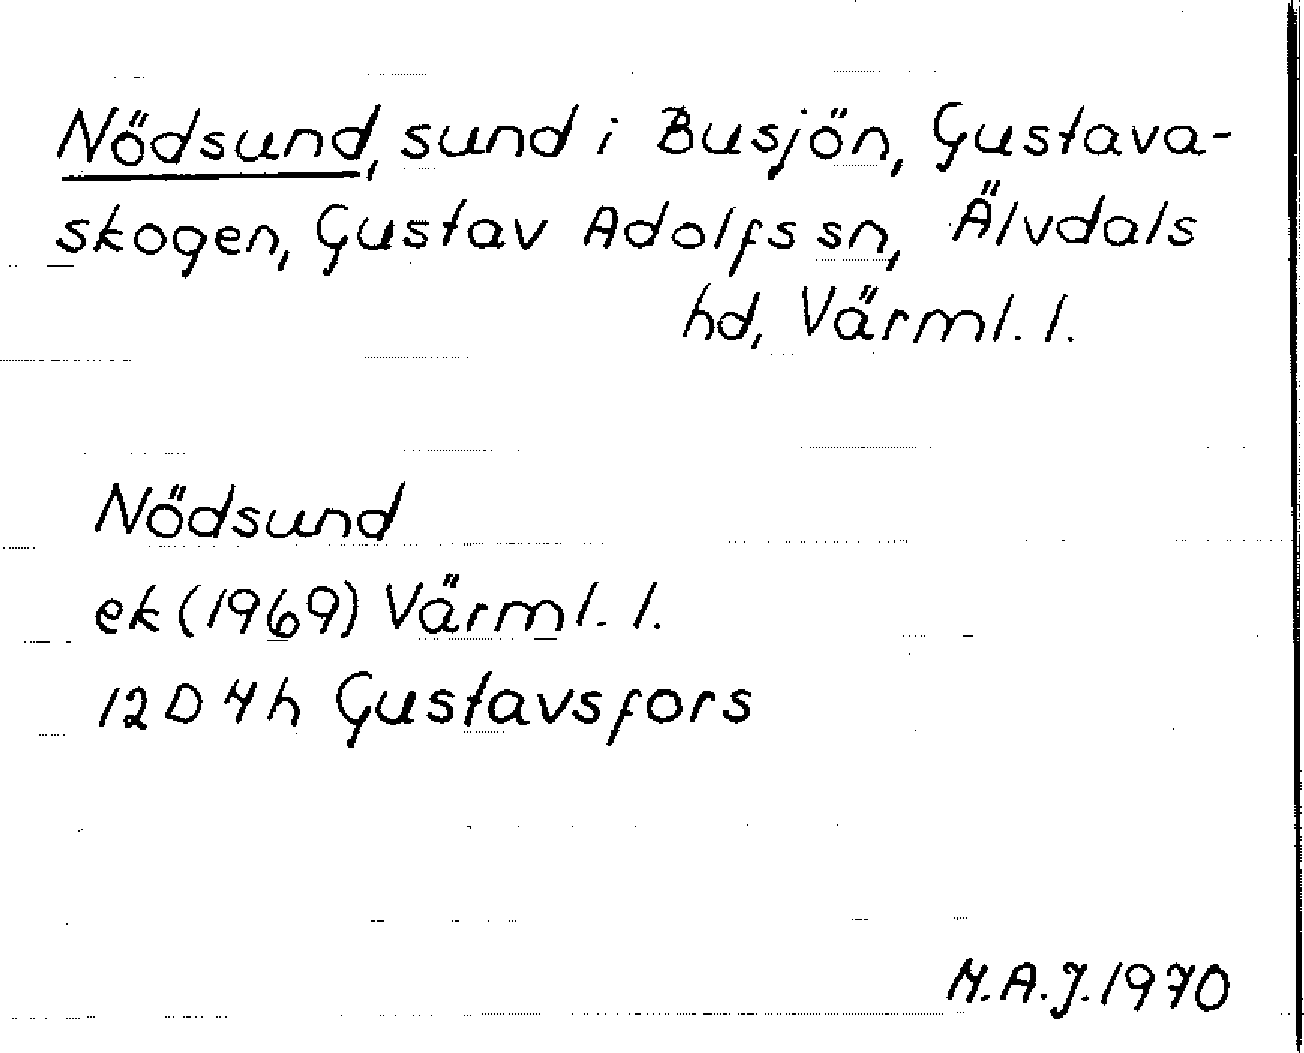 Nödsund, sund i Busjön, Gustava-
skogen, Gustav Adolfs sn, Älvdals
hd, Värml. l.
Nödsund
ek (1969) Värml. l.
12D 4h Gustavsfors
M.A.J. 1970